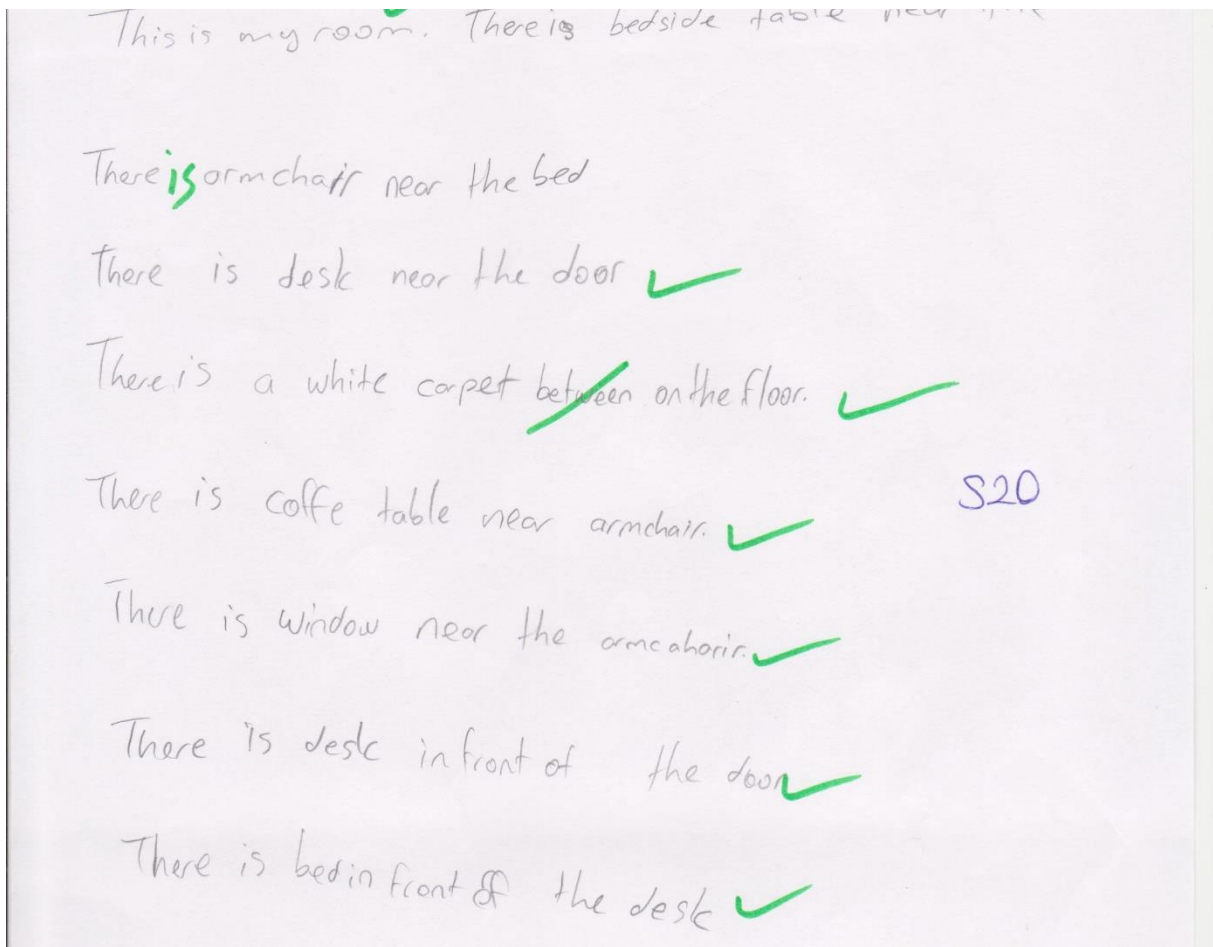 This is my room. There is bedside table near
There is armchair near the bed
There is desk near the door
There is a white carpet between on the floor.
There is coffe table near armchair.
S20
There is window near the armcahorir.
There is desk in front of the door
There is bed in front of the desk